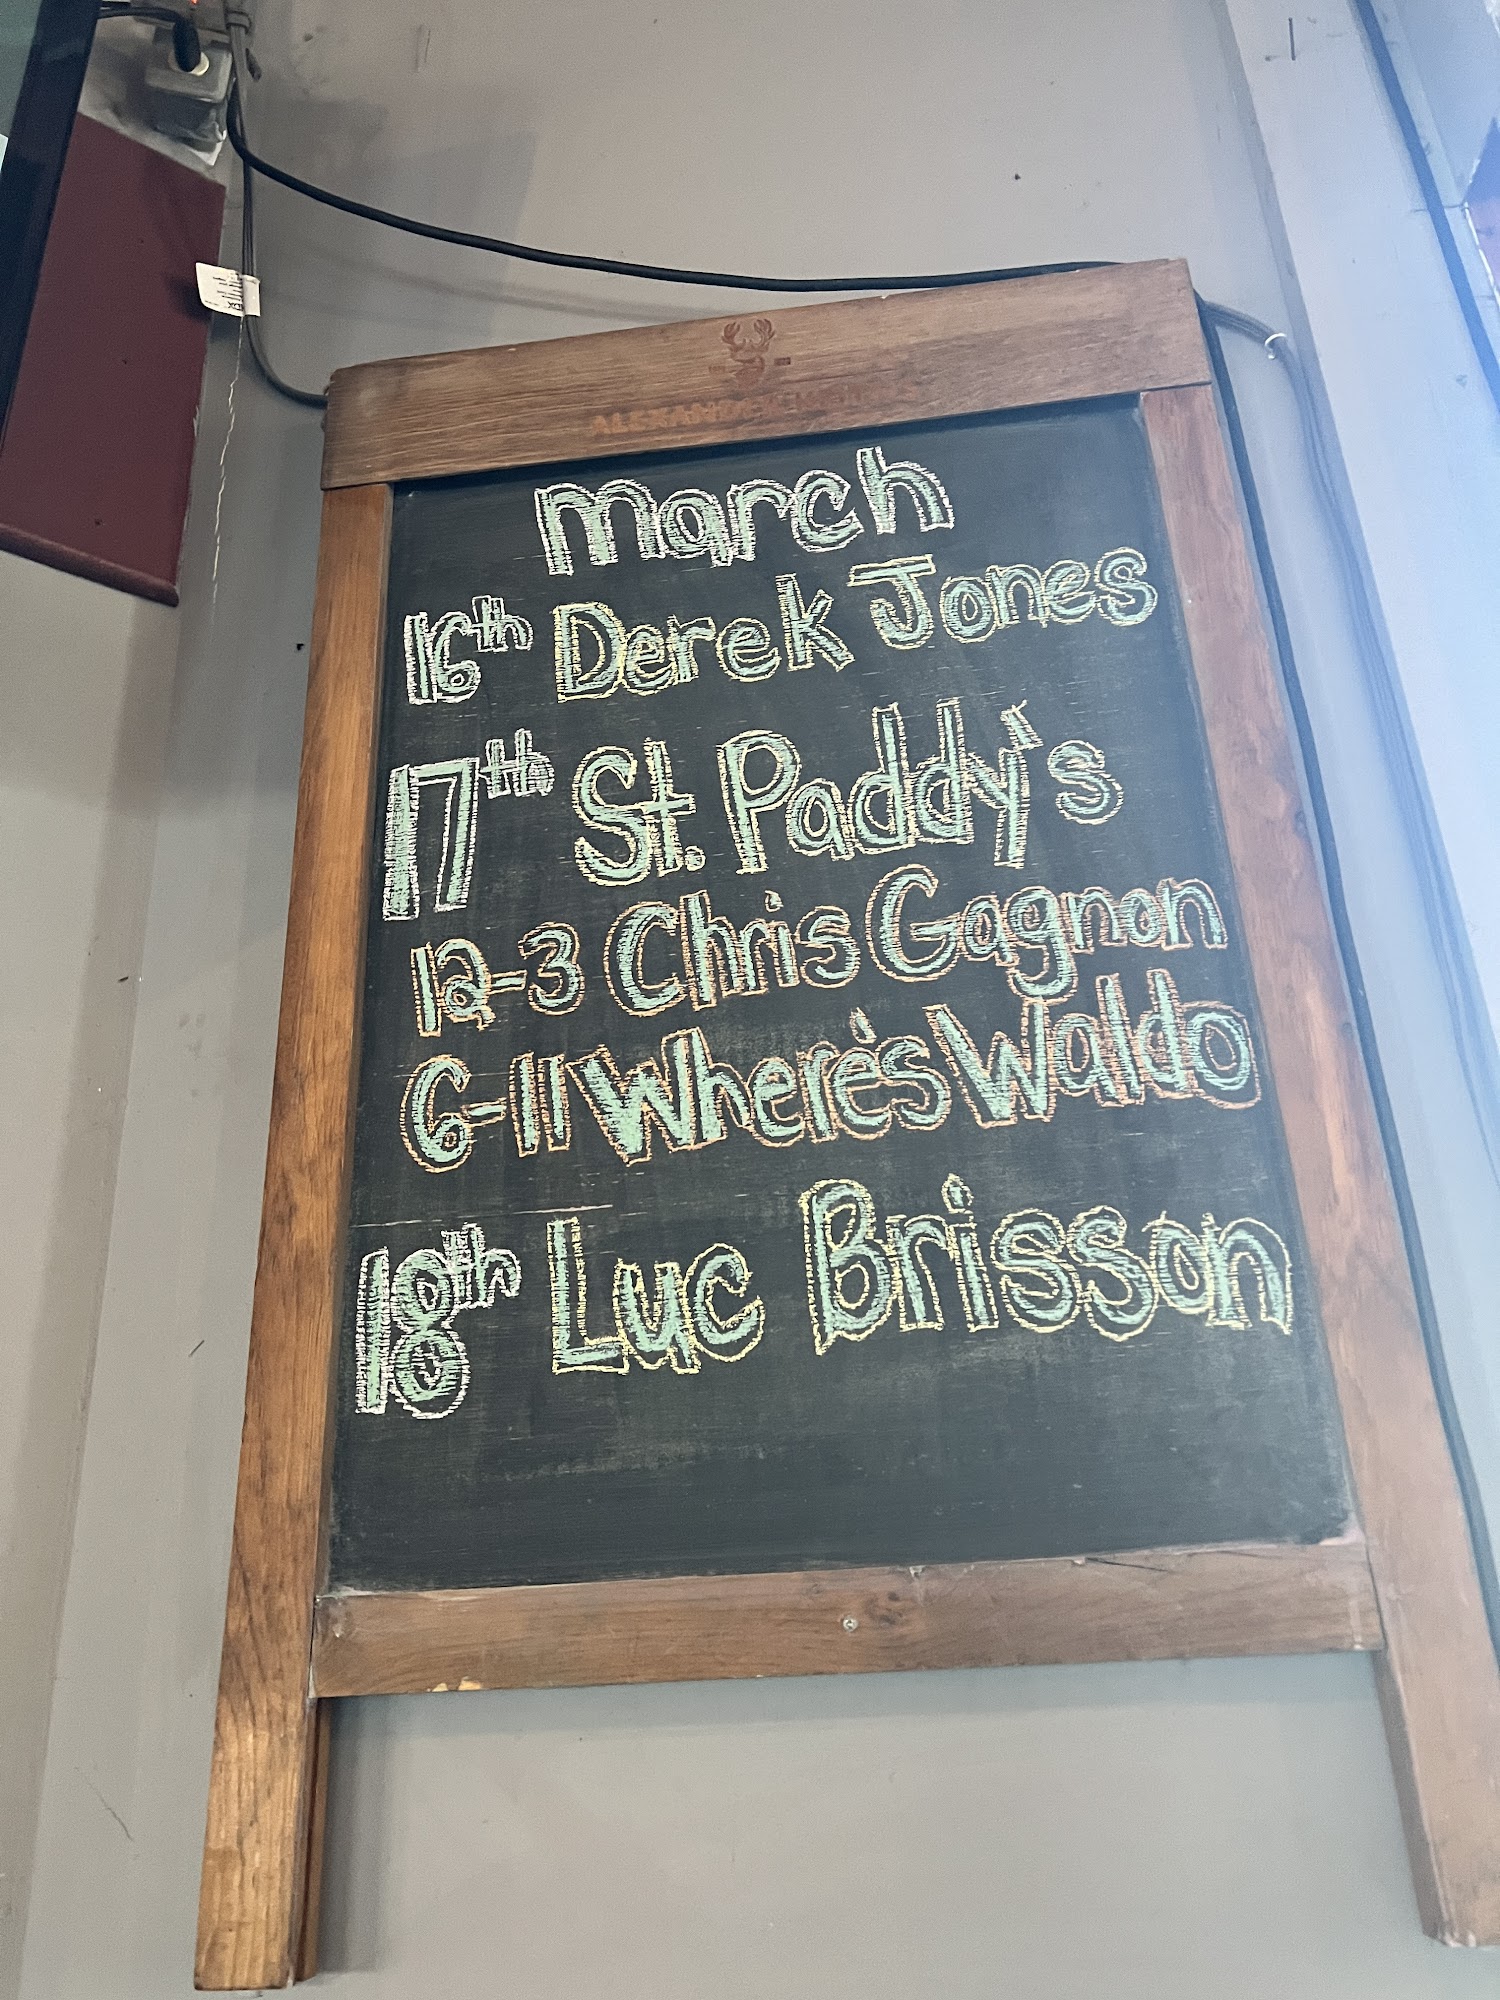 ALEXANDER KEITH'S
March
16th Derek Jones
17th St. Paddy's
12-3 Chris Gagnon
6-11 Where's Waldo
18th Luc Brisson